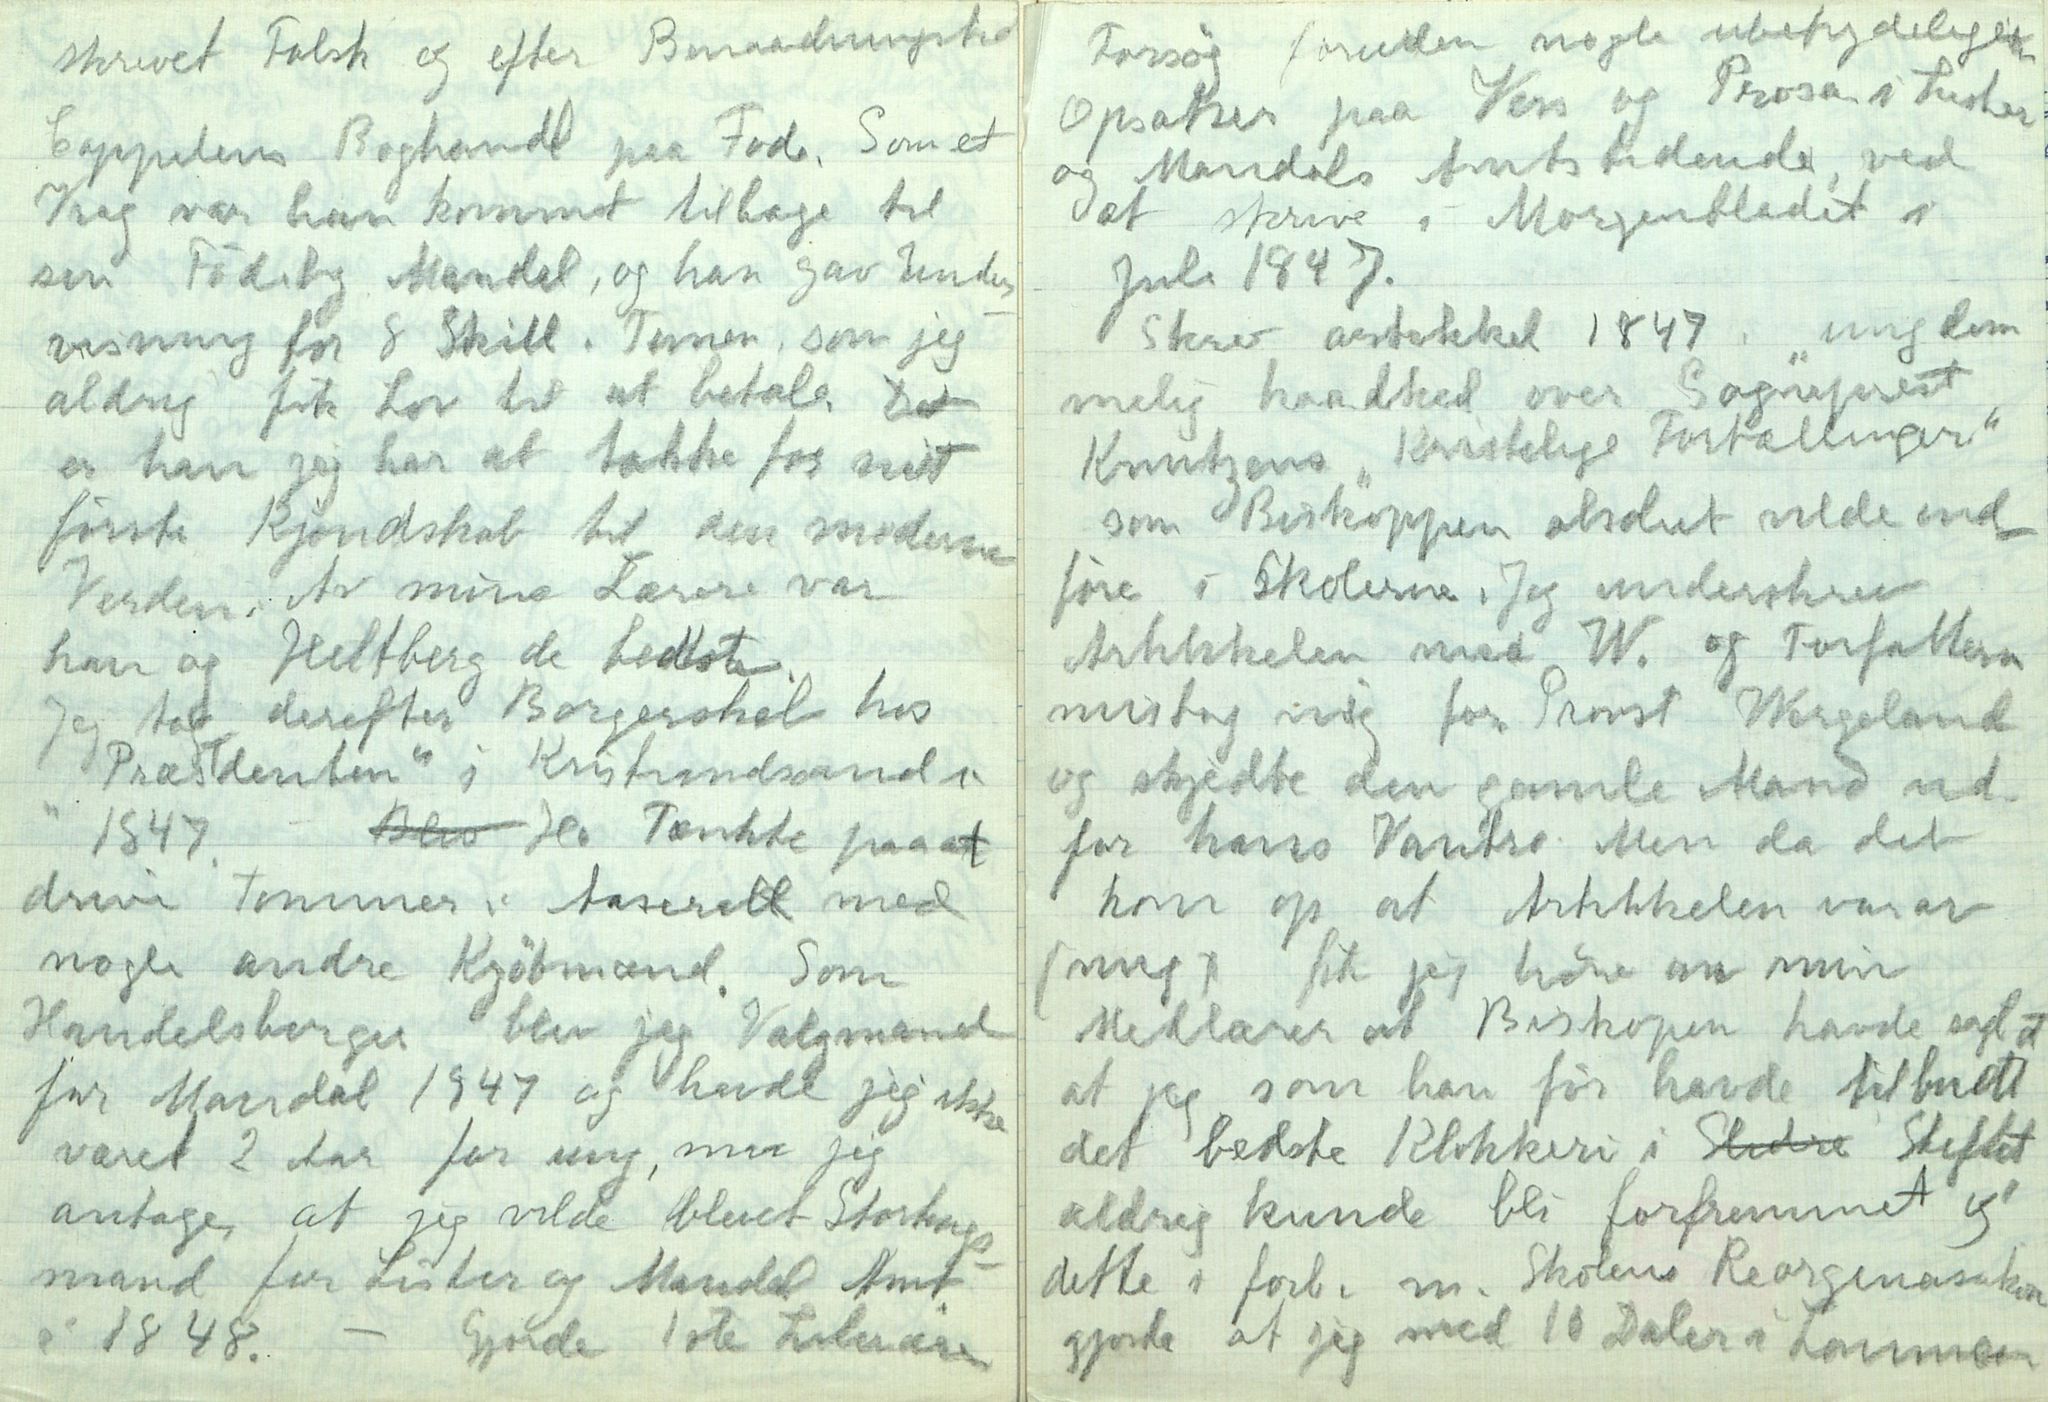 skrevet Falsk og efter Benaadningstid
Cappelens Boghandl paa Fode. Som et
Vrag var han kommet tilbage til
sin Födeby Mandal, og han gav Under-
visning for 8 Skill. Timen, som jeg
aldrig fik Lov til at betale. Det
er han jeg har at takke for mit
förste Kjendskab til den moderne
Verden. Av mine Lærere var
han og Heltberg de bedste.
Jeg tog derefter Borgerskab hos
"Præsidenten" i Kristiansand i
1847. – Blev Jeg Tænkte paa at
drive Tømmer i Aaserall med
nogle andre Kjöbmænd. Som
Handelsborger blev jeg Valgmand
for Mandal 1847 og havde jeg ikke
været 2 Aar for ung, maa jeg
antage, at jeg vilde blevet Stortings-
mand for Lister og Mandal Amt
i 1848. – Gjorde 1ste Literære
Forsög foruden nogle ubetydelige
Opsatser paa Vers og Prosa i Lister
og Mandals Amtstidende, ved
at skrive i Morgenbladet i
Juli 1847.
Skrev artikkel 1847 i "ungdom
melig haadhed over Sogneprest
Knutzens "Kristelige Fortællinger"
som Biskoppen absolut vilde ind
före i Skolerne. Jeg underskrev
Artikkelen med W. og Forfatteren
mistog mig for Provst Wergeland
og skjedte den gamle Mand ud
for hans Vantro. Men da det
kom op at Artikkelen var av
(mig) fik jeg höre av min
Medlærer at Biskopen havde sagt at
at jeg som han för havde tilbudt
det bedste Klokkeri i Stiftet
aldrig kunde bli forfremmet og
dette i forb. m. Skolens Reorganisation
gjorde at jeg med 10 Daler i Lommen